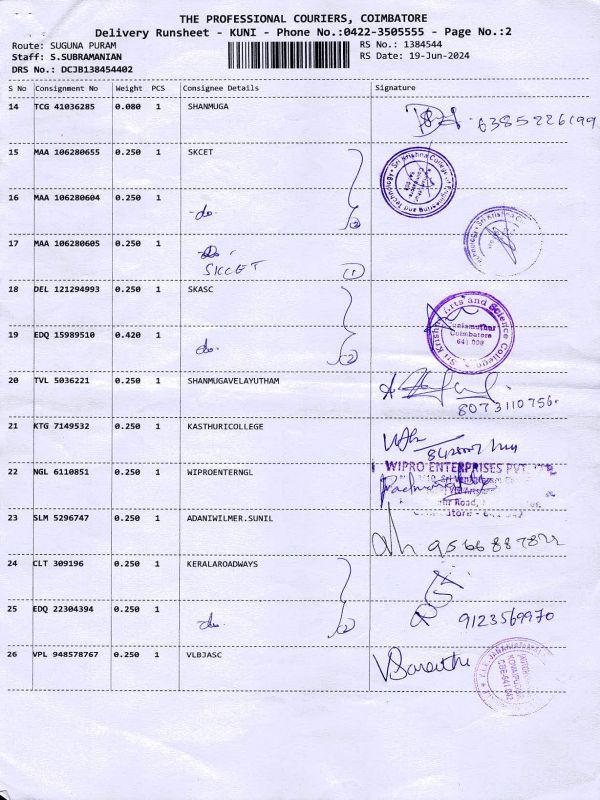 THE PROFESSIONAL COURIERS, COIMBATORE
Delivery Runsheet - KUNI - Phone No.:0422-3505555 - Page No.:2
Route: SUGUNA PURAM RS No.: 1384544
Staff: S.SUBRAMANIAN RS Date: 19-Jun-2024
DRS No.: DCJB138454402
S No Consignment No Weight PCS Consignee Details Signature
14 TCG 41036285 0.080 1 SHANMUGA 6385226199
15 MAA 106280655 0.250 1 SKCET
16 MAA 106280604 0.250 1 -do- (2)
17 MAA 106280605 0.250 1 SKCET (1)
18 DEL 121294993 0.250 1 SKASC
Coimbatore
641 008
19 EDQ 15989510 0.420 1 do. (2)
20 TVL 5036221 0.250 1 SHANMUGAVELAYUTHAM
8073110756.
21 KTG 7149532 0.250 1 KASTHURICOLLEGE
22 NGL 6110851 0.250 1 WIPROENTERNGL WIPRO ENTERPRISES PVT
23 SLM 5296747 0.250 1 ADANIWILMER.SUNIL
24 CLT 309196 0.250 1 KERALAROADWAYS
25 EDQ 22304394 0.250 1 do. (2) 9123569970
26 VPL 948578767 0.250 1 VLBJASC